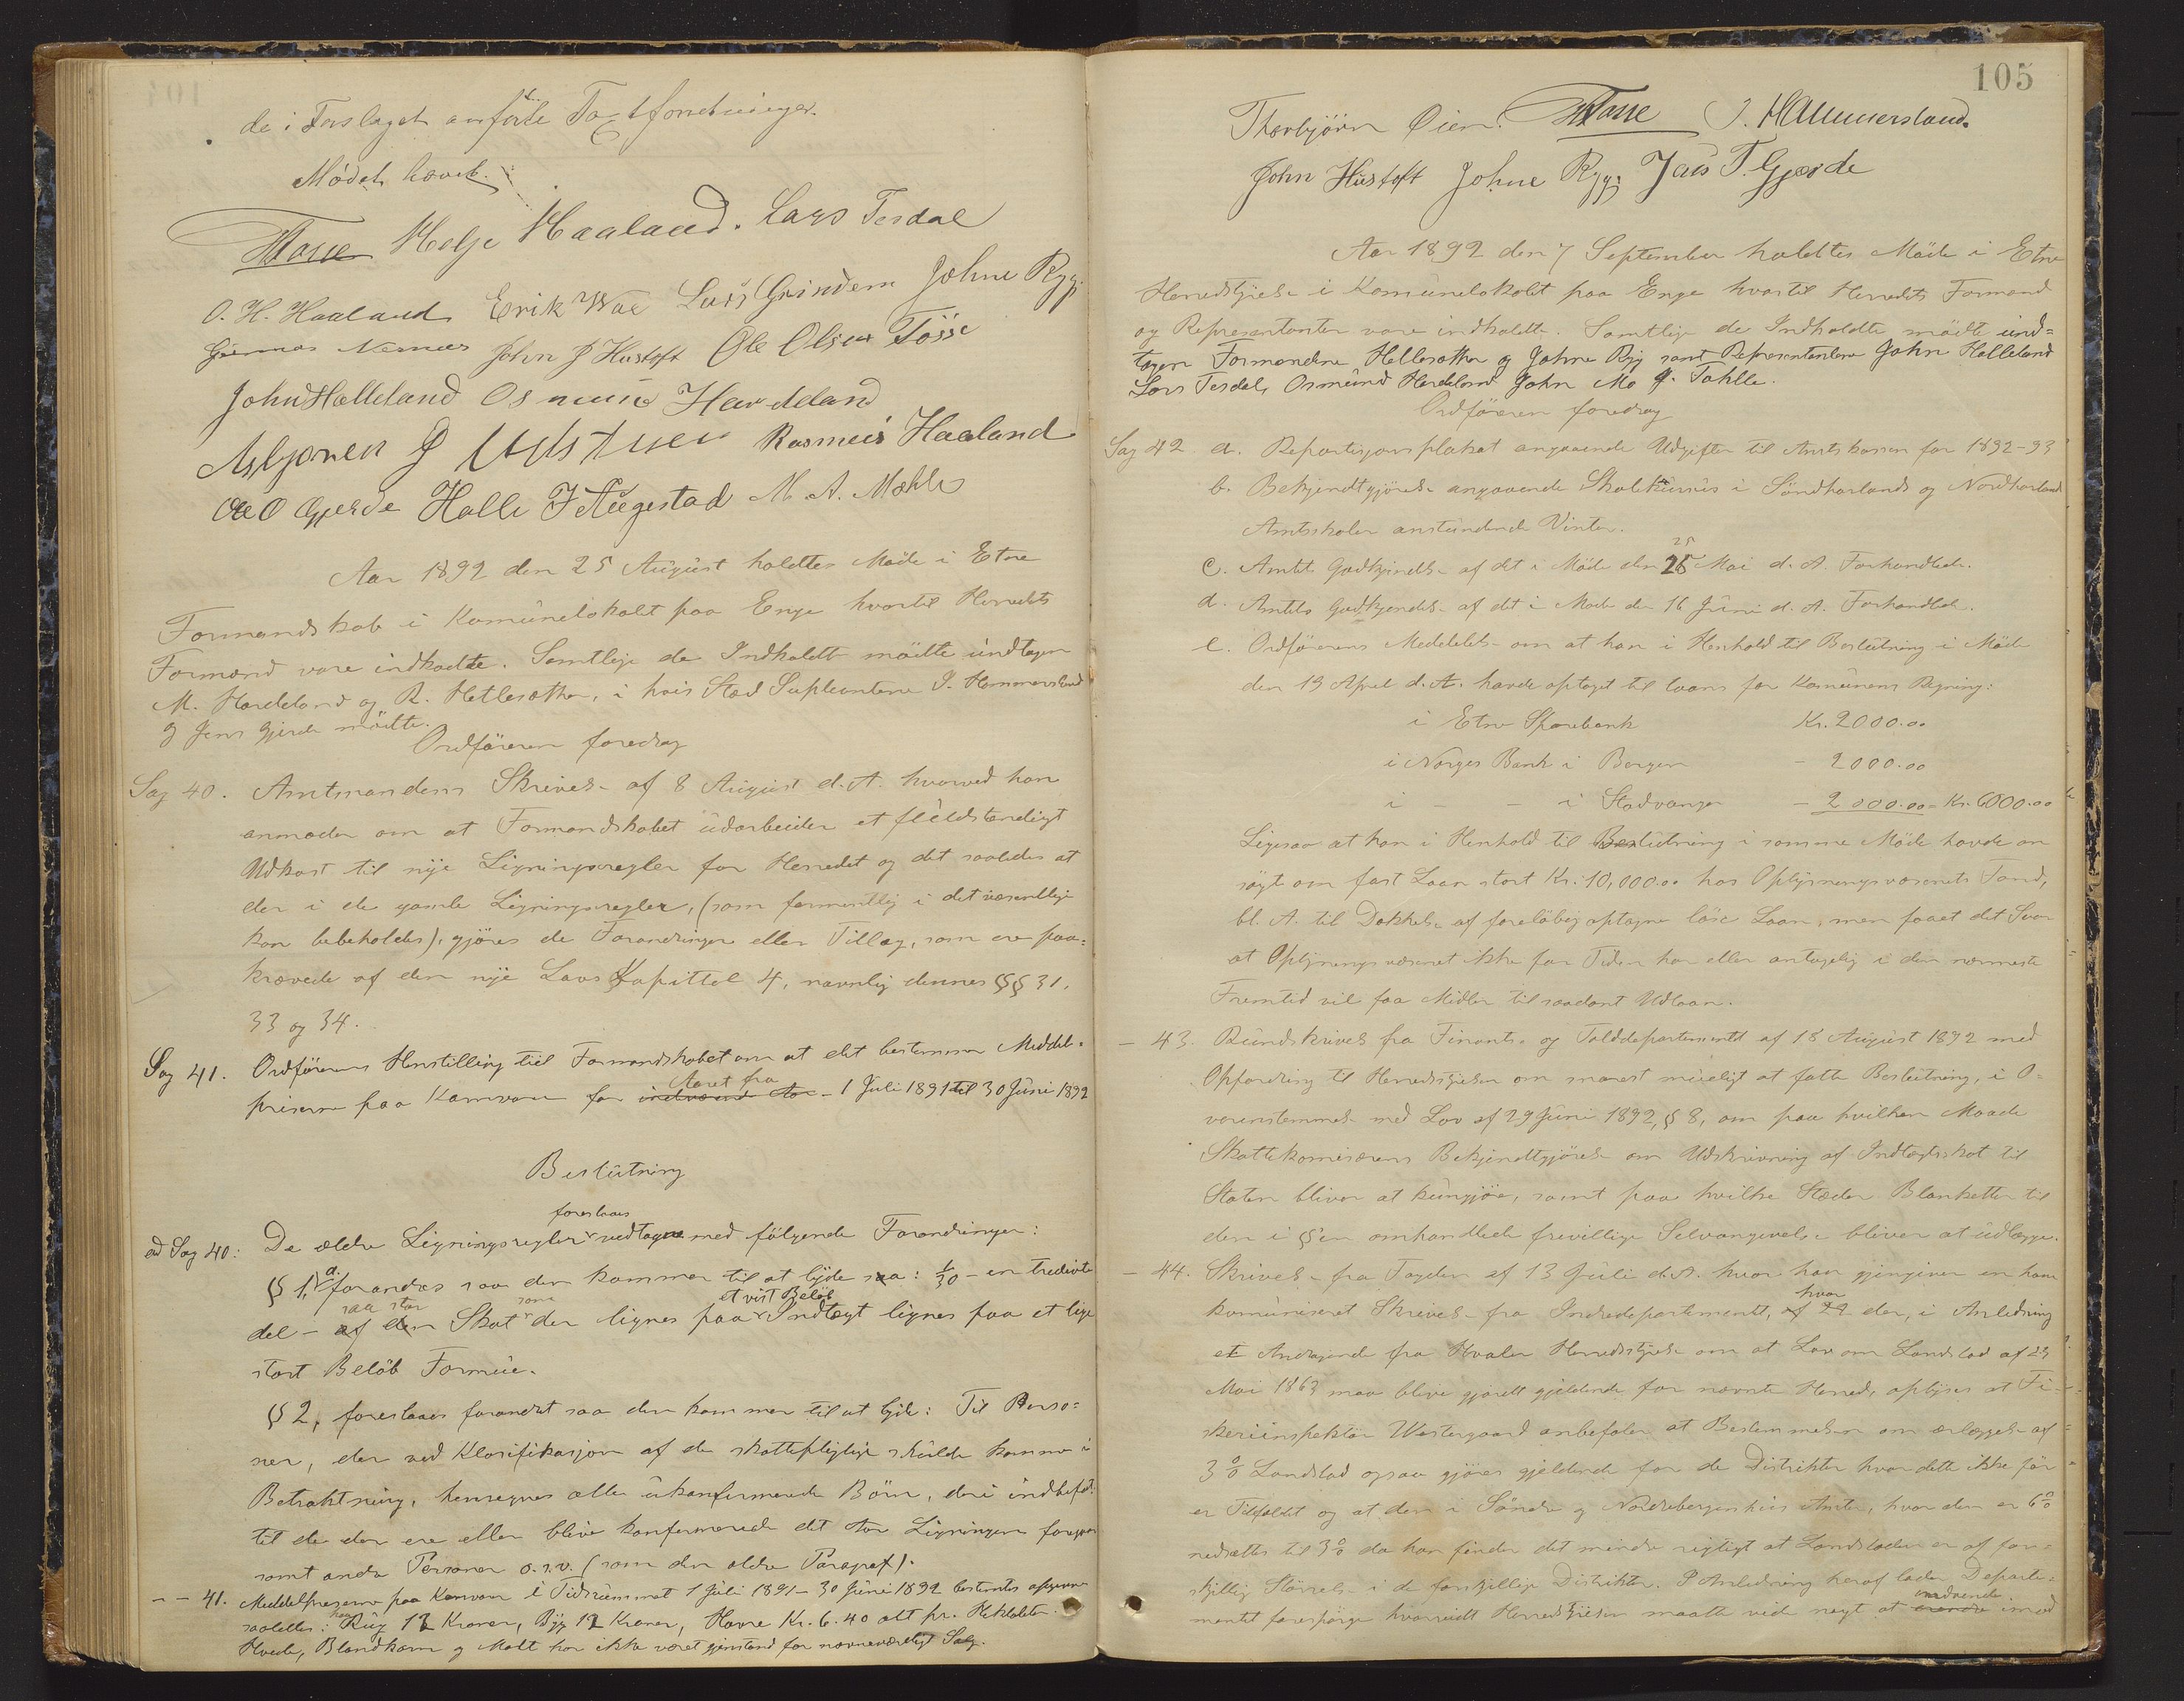 de i Forslaget anførte Taxtforretninger.
Mødet hævet.
Helje Haaland. Lars Tesdal
O. H. Haaland Erik Wae Lars Grindem Johne Rygg
Nernæs John J Hustoft Ole Olsen Tøsse
John Halleland Osmund Hardeland
Rasmus Haaland
Ole O Gjerde Halle J Augestad M. A. Mæhle
Aar 1892 den 25 August holdtes Møde i Etne
Formandskab i Komunelokalet paa Enge hvortil Herredets
Formænd vare indkaldte. Samtlige de Indkaldte mødte undtagen
M. Hardeland og R. Hetlesæther, i hvis Sted Supleantene I. Hammersland
og Jens Gjerde mødte.
Ordføreren foredrag
Sag 40. Amtmandens Skrivels- af 8 August d. A. hvorved han
anmoder om at Formandskabet udarbeider et fuldstændigt
Udkast til nye Ligningsregler for Herredet og det saaledes at
der i de gamle Ligningsregler, (som formentlig i det væsentlige
kan bebeholdes), gjøres de Forandringer eller Tillæg, som er paa=
krævede af den nye Lovs Kapittel 4, navnlig dennes §§ 31,
33 og 34.
Sag 41. Ordførerens Henstilling til Formandskabet om at det bestemmer Middel-
priserne paa Kornvare for indeværende Aar Aaret fra 1 Juli 1891 til 30 Juni 1892
Beslutning
foreslaaes
ad Sag 40: De ældre Ligningsregler vedtagne med følgende Forandringer:
§ 1, a. forandres saa den kommer til at lyde saa: 1/30 - en tredivte
saa stor som et vist Beløb
del - af den Skat der lignes paa Indtægt lignes paa et lige
stort Beløb Formue.
§ 2, foreslaaes forandret saa den kommer til at lyde: Til Perso=
ner, der ved Klasifikasjon af de skattepligtige skulde komme i
Betraktning, henregnes alle ukonfirmerede Børn, deri indbefat.
til de der ere eller blive konfirmerede det Aar Ligningen foregaar
samt andre Personer o.s.v. (som den ældre Paragraf).
- - 41. Middelpriserne paa Kornvare i Tidsrummet 1 Juli 1891 - 30 Juni 1892 bestemtes
saaledes: Rug 12 Kroner, Byg 12 Kroner, Havre Kr. 6.40 alt pr. Hektoliter.
Hvede, Blandkorn og Malt har ikke været gjenstand for nævneværdigt Salg.
105
Thorbjørn Øien. I. Hammersland.
John Hustoft Johne Rygg Jens T. Gjerde
Aar 1892 den 7 September holdtes Møde i Etne
Herredstyrels- i Komunelokalet paa Enge hvortil Herredets Formænd
og Repræsentanter vare indkaldte. Samtlige de Indkaldte mødte und=
tagen Formændene Hetlesæther og Johne Rygg samt Repræsentanterne John Halleland
Lars Tesdal, Osmund Hardeland John Mo
Ordføreren foredrag
Sag 42 a. Repartisjonsplakat angaaende Udgifter til Amtskassen for 1892-93
b. Bekjendtgjørels- angaaende Skolekursus i Søndhorlands og Nordhorland
Amtsskoler anstundende Vinter.
c. Amtets Godkjendels- af det i Møde den 25 Mai d. A. Forhandlede.
d. Amtets Godkjendels- af det i Møde den 16 Juni d. A. Forhandlede.
e. Ordførerens Meddelels- om at han i Henhold til Beslutning i Møde
den 13 April d. A. havde optaget til laans for Komunens Regning:
i Etne Sparebank Kr. 2000.00
i Norges Bank i Bergen - 2000.00
i - - i Stavanger - 2000.00 = Kr. 6000.00
Ligesaa at han i Henhold til Beslutning i samme Møde havde an
søgt om fast Laan stort Kr. 10,000.00 hos Oplysningsvæsenets Fond,
bl. A. til Dækkels- af foreløbig optagne løse Laan, men faaet det Svar
at Oplysningsvæsenet ikke for Tiden har eller antagelig i den nærmeste
Fremtid vil faa Midler til saadant Udlaan.
- 43. Rundskrivels fra Finants- og Tolddepartementet af 18 August 1892 med
Opfordring til Herredsstyrelsen om snarest mueligt at fatte Beslutning, i O=
verenstemmels- med Lov af 29 Juni 1892, § 8, om paa hvilken Maade
Skattekomisærens Bekjendtgjørels- om Udskrivning af Indtægtsskat til
Staten bliver at kungjøre, samt paa hvilke Stæder Blanketter til
den i §'en omhandlede frivillige Selvangivels- bliver at udlægge.
- 44. Skrivels- fra Fogden af 13 Juli d. A. hvor han gjengiver en ham
komuniseret Skrivels- fra Indredepartementet, hvor der, i Anledning
et Andragende fra Hvaler Herredsstyrels- om at Lov om Landslod af 23
Mai 1863 maa blive gjordt gjeldende for nævnte Herred, oplyses at Fi-
skeriinspektør Westergaard anbefaler at Bestemmelsen om erlæggels- af
3 % Landslod ogsaa gjøres gjeldende for de Distrikter hvor dette ikke før
er Tilfældet og at den i Søndre og Nordrebergenhus Amter, hvor den er 6 %
nedsættes til 3 % da han finder det mindre rigtigt at Landsloden er af for=
skjellig Størrels- i de forskjellige Distrikter. I Anledning heraf lader Departe=
mentet forespørge hvorvidt Herredstyrelsen maatte vide noget at indvende imod